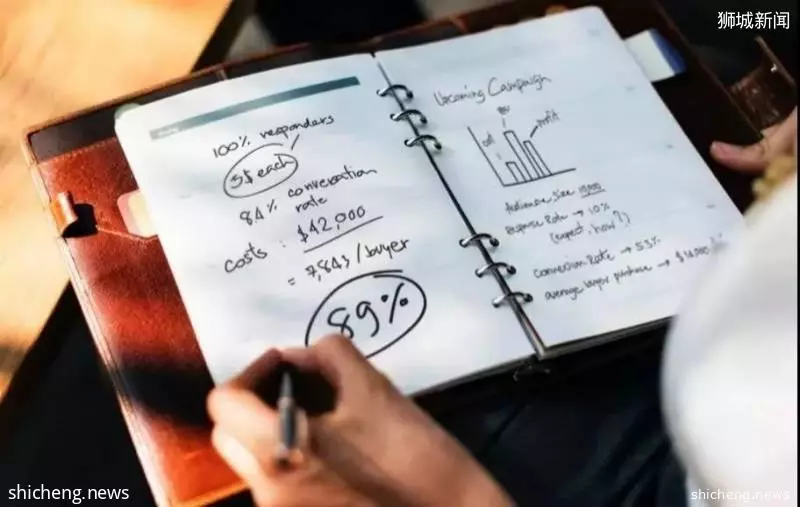 狮城新闻
100% responders
5$ each
8.4% conversation
rate
costs : $42,000
= 7,843 / buyer
89%
Upcoming Campaign
rev
cost
profit
Audience size 10,000
response Rate → 10%
(expect, how?)
conversion Rate → 5.5%
average buyer purchase →
shicheng.news
shicheng.news